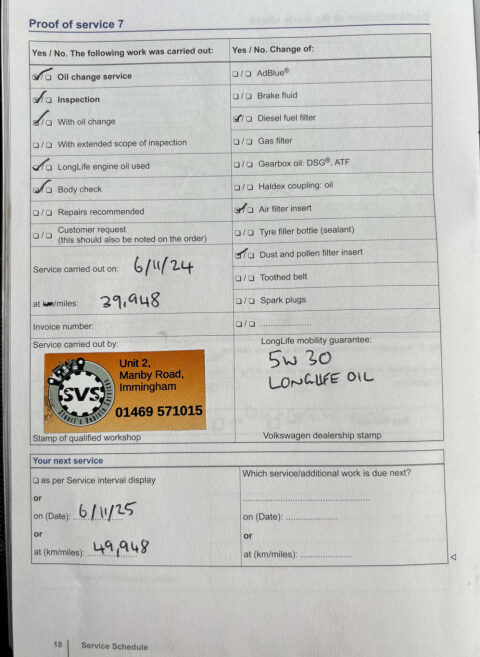 Proof of service 7
Yes / No. The following work was carried out:
Oil change service
Inspection
With oil change
With extended scope of inspection
LongLife engine oil used
Body check
Repairs recommended
Customer request
(this should also be noted on the order)
Service carried out on: 6/11/24
at km/miles: 39,948
Invoice number:
Service carried out by:
SVS
Unit 2,
Manby Road,
Immingham
01469 571015
Stamp of qualified workshop
Yes / No. Change of:
AdBlue®
Brake fluid
Diesel fuel filter
Gas filter
Gearbox oil: DSG®, ATF
Haldex coupling: oil
Air filter insert
Tyre filler bottle (sealant)
Dust and pollen filter insert
Toothed belt
Spark plugs
LongLife mobility guarantee:
5W 30
LONGLIFE OIL
Volkswagen dealership stamp
Your next service
as per Service interval display
or
on (Date): 6/11/25
or
at (km/miles): 49,948
Which service/additional work is due next?
on (Date):
or
at (km/miles):
18 Service Schedule